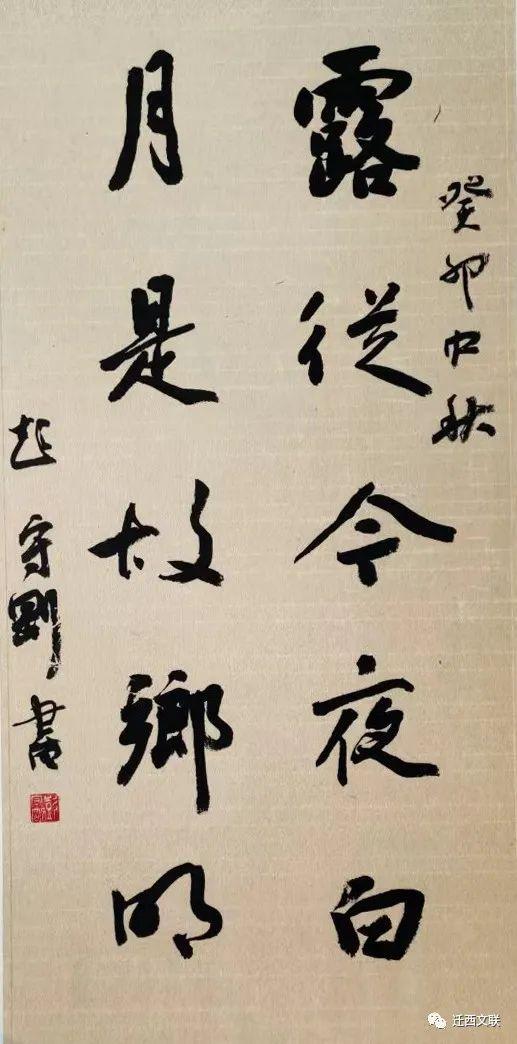 癸卯中秋
露從今夜白
月是故鄉明
赵守剛書
迁西文联